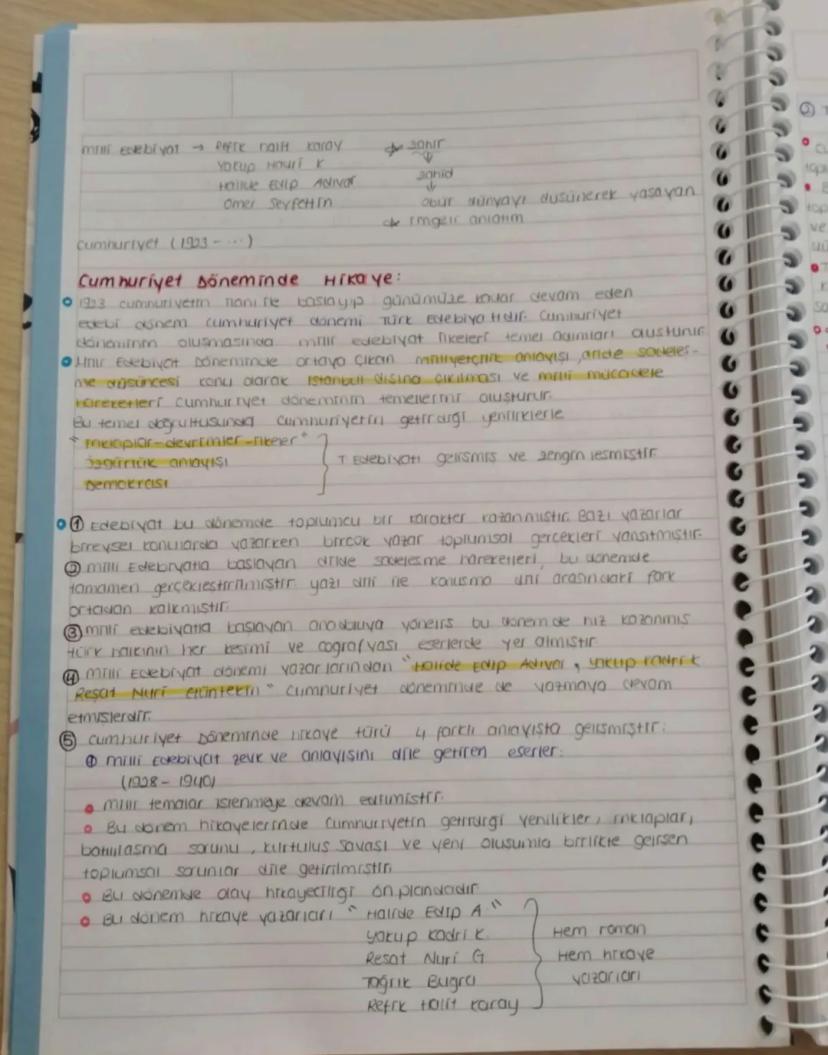 milli Edebiyat → Refik Halit Karay
Yakup Kadri K
Halide Edip Adıvar
Ömer Seyfettin
zahir
↓
zahid
↓
öbür dünyayı düşünerek yaşayan
imgeli anlatım
Cumhuriyet (1923 - ...)
Cumhuriyet Döneminde Hikaye:
1923 cumhuriyetin ilanı ile başlayıp günümüze kadar devam eden
edebi dönem cumhuriyet dönemi Türk Edebiyatıdır. Cumhuriyet
döneminin oluşmasında milli edebiyat ilkeleri temel adımları oluşturur.
Milli Edebiyat Döneminde ortaya çıkan milliyetçilik anlayışı, dilde sadeleş-
me düşüncesi konu olarak İstanbul dışına çıkılması ve milli mücadele
hareketleri cumhuriyet döneminin temellerini oluşturur.
Bu temel doğrultusunda cumhuriyetin getirdiği yeniliklerle
"inkılaplar-devrimler-ilkeler"
özgürlük anlayışı
Demokrasi
T Edebiyatı gelişmiş ve zenginleşmiştir
① Edebiyat bu dönemde toplumcu bir karakter kazanmıştır. Bazı yazarlar
bireysel konularda yazarken birçok yazar toplumsal gerçekleri yansıtmıştır.
② milli Edebiyatla başlayan dilde sadeleşme hareketleri, bu dönemde
tamamen gerçekleştirilmiştir. yazı dili ile konuşma dili arasındaki fark
ortadan kalkmıştır.
③ milli edebiyatla başlayan anadoluya yöneliş bu dönemde hız kazanmış
türk halkının her kesimi ve coğrafyası eserlerde yer almıştır.
④ milli Edebiyat dönemi yazarlarından "Halide Edip Adıvar, Yakup Kadri K
Reşat Nuri Güntekin" cumhuriyet döneminde de yazmaya devam
etmişlerdir.
⑤ Cumhuriyet Döneminde hikaye türü 4 farklı anlayışta gelişmiştir:
① milli Edebiyat zevk ve anlayışını dile getiren eserler:
(1928 - 1940)
milli temalar işlenmeye devam edilmiştir.
Bu dönem hikayelerinde Cumhuriyetin getirdiği yenilikler, inkılaplar,
batılılaşma sorunu, kurtuluş savaşı ve yeni oluşumla birlikte gelişen
toplumsal sorunlar dile getirilmiştir.
Bu dönemde olay hikayeciliği ön plandadır
Bu dönem hikaye yazarları "Halide Edip A"
Yakup Kadri K.
Reşat Nuri G
Tağrık Buğra
Refik Halit Karay
Hem roman
Hem hikaye
yazarları